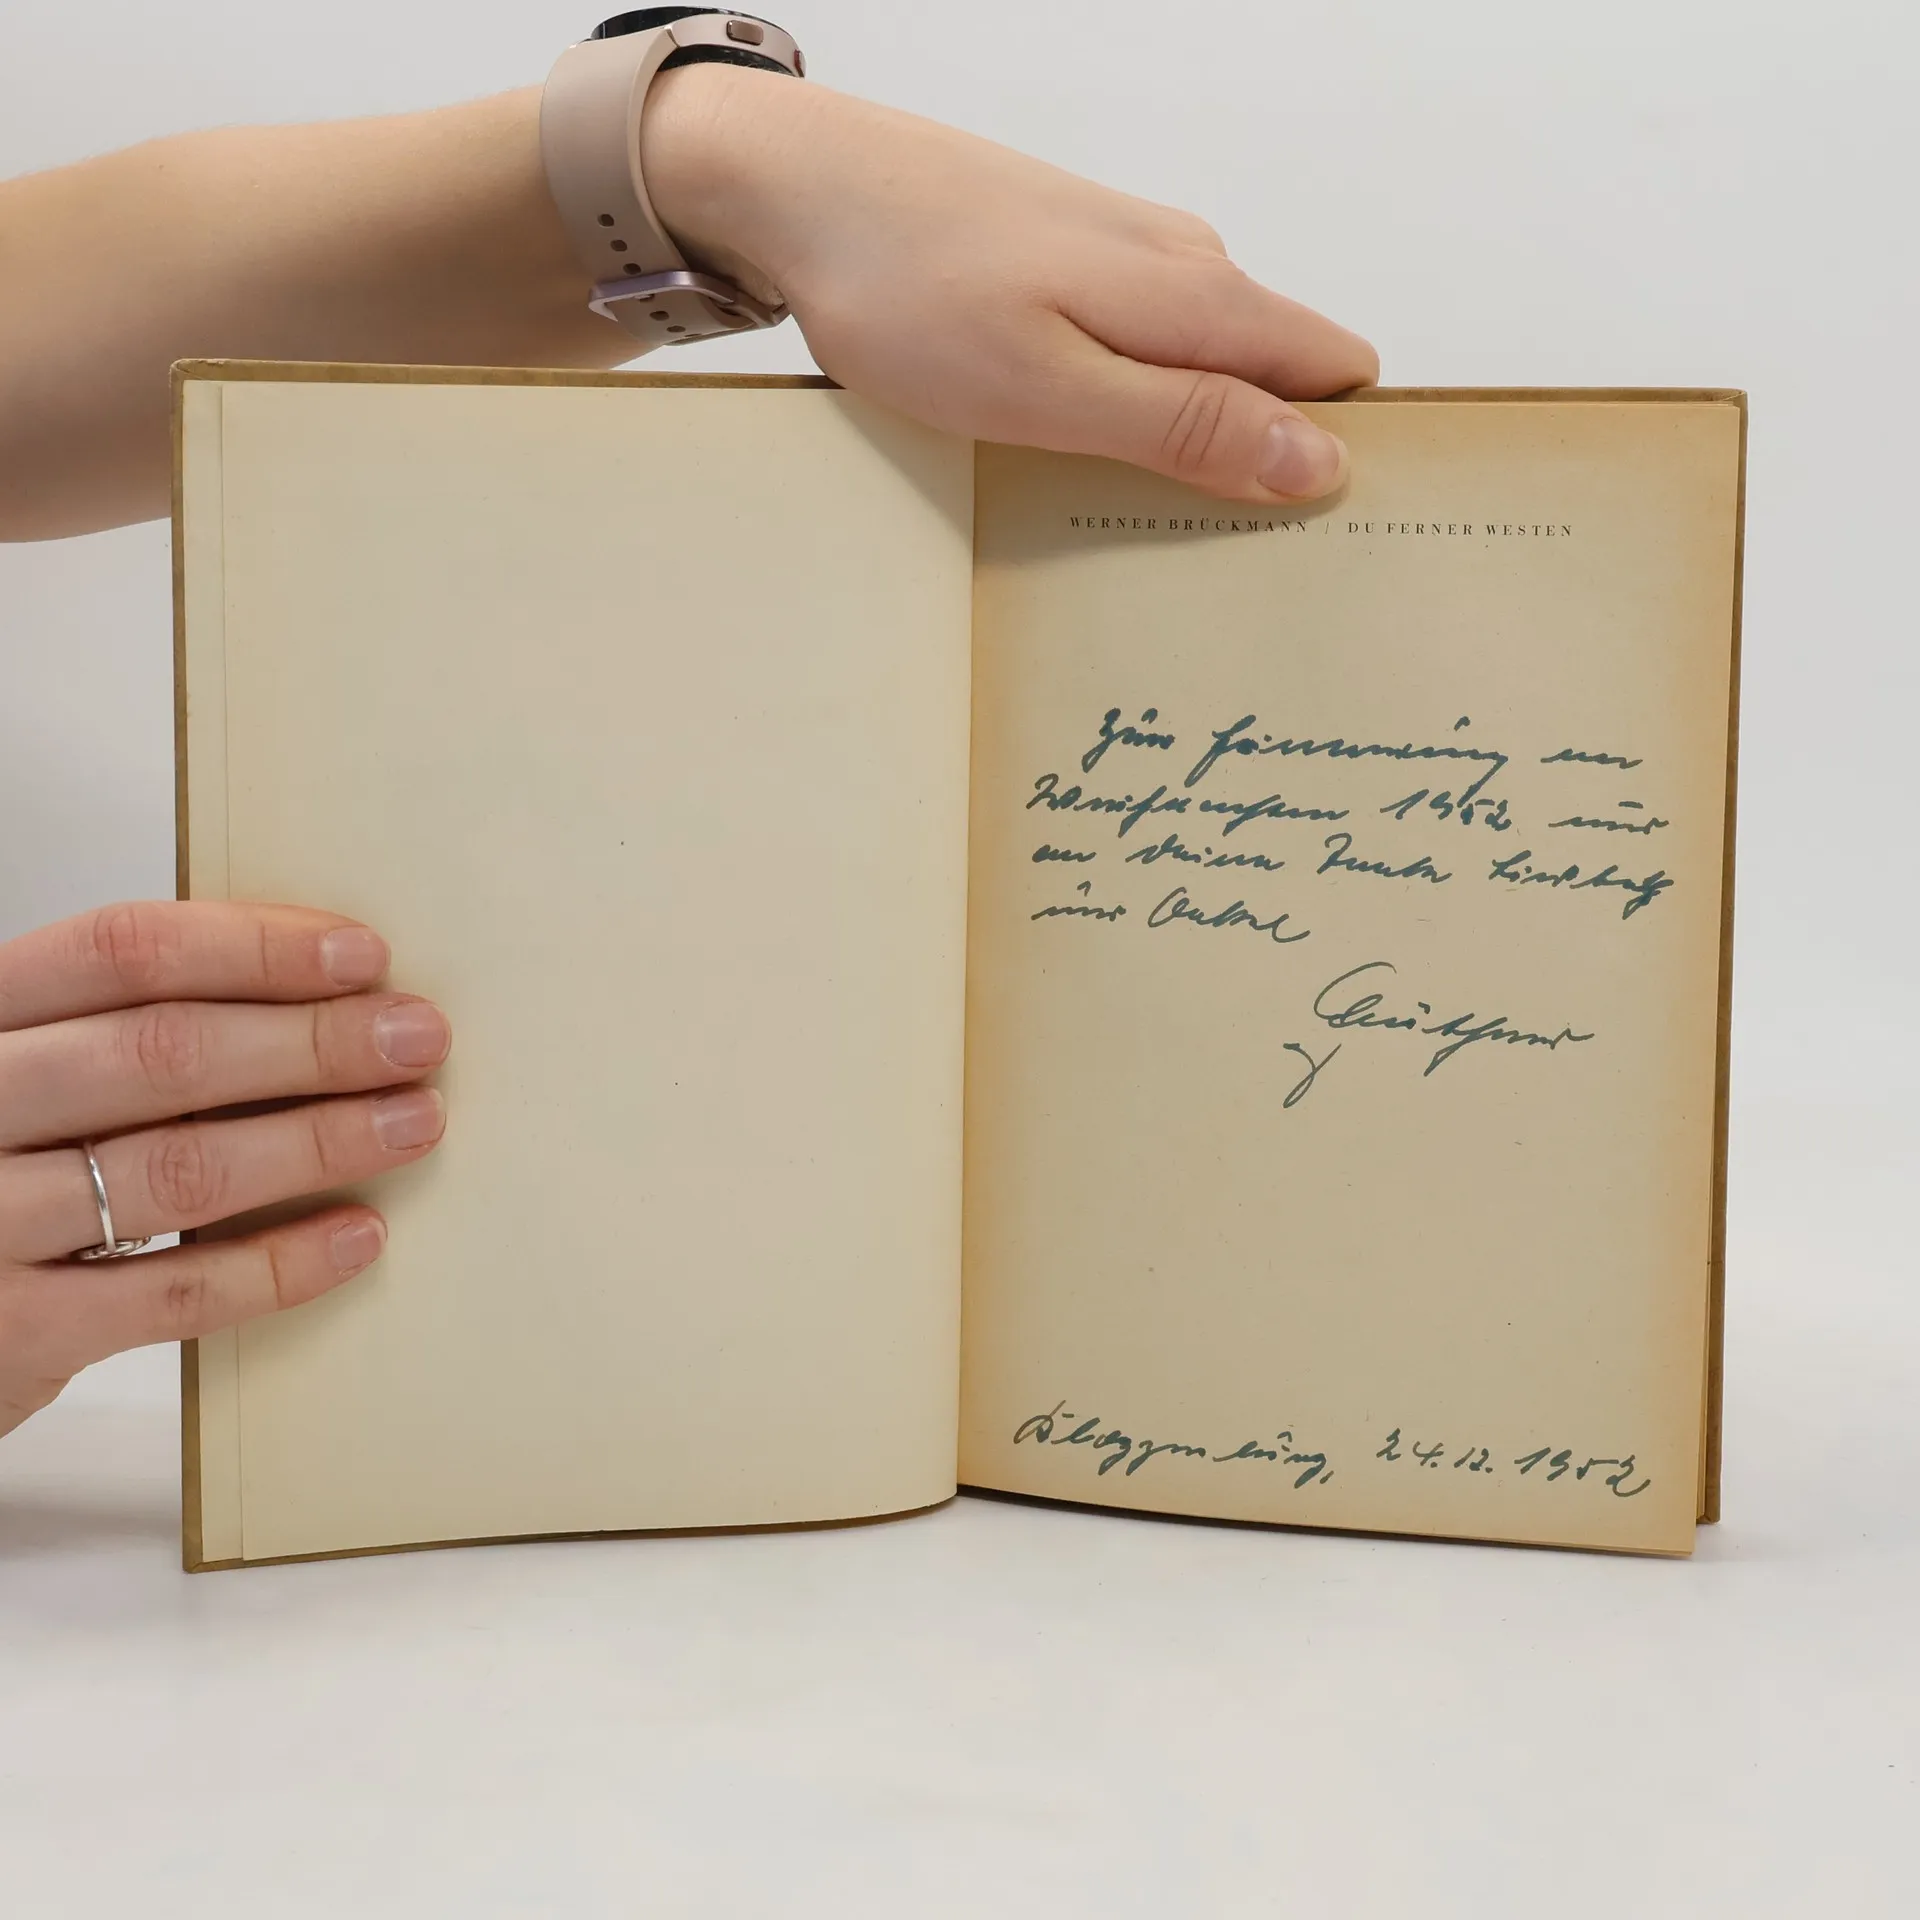 WERNER BRÜCKMANN / DU FERNER WESTEN
Zur Erinnerung an
Weihnachten 1952 und
an Deine Tante
und Onkel
24.12.1952